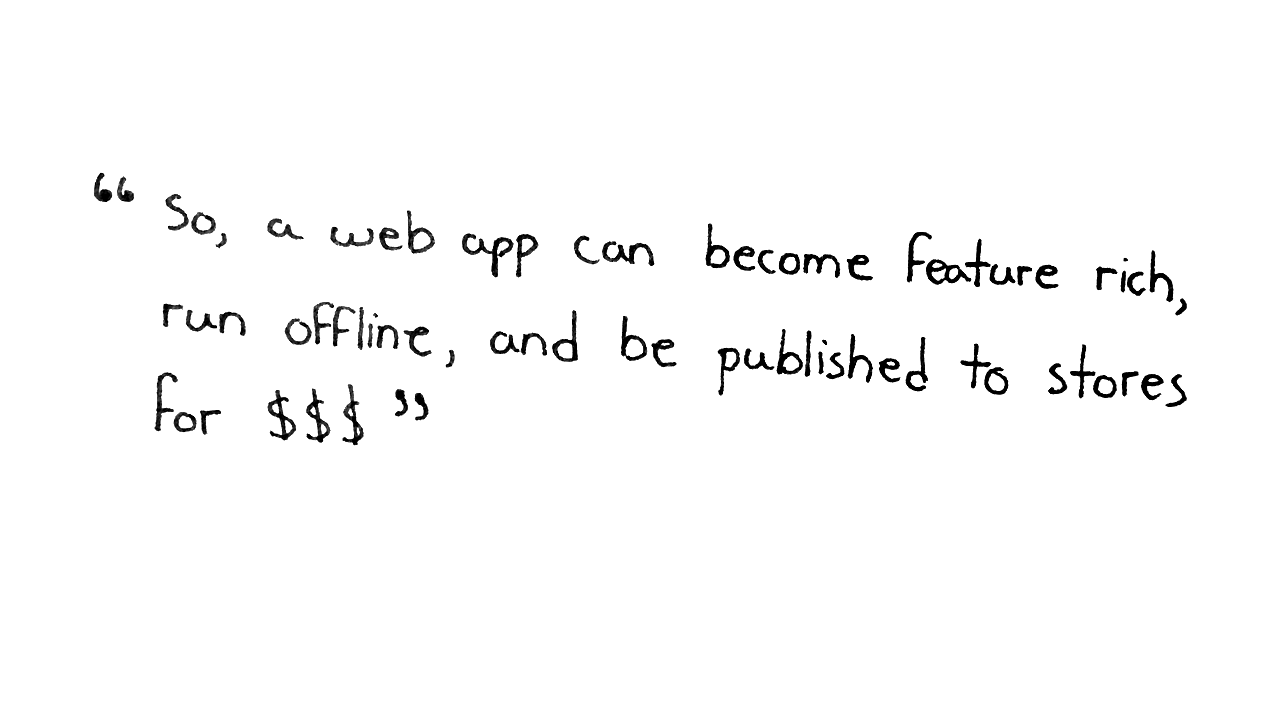 “ So, a web app can become feature rich,
run offline, and be published to stores
for $$$ ”